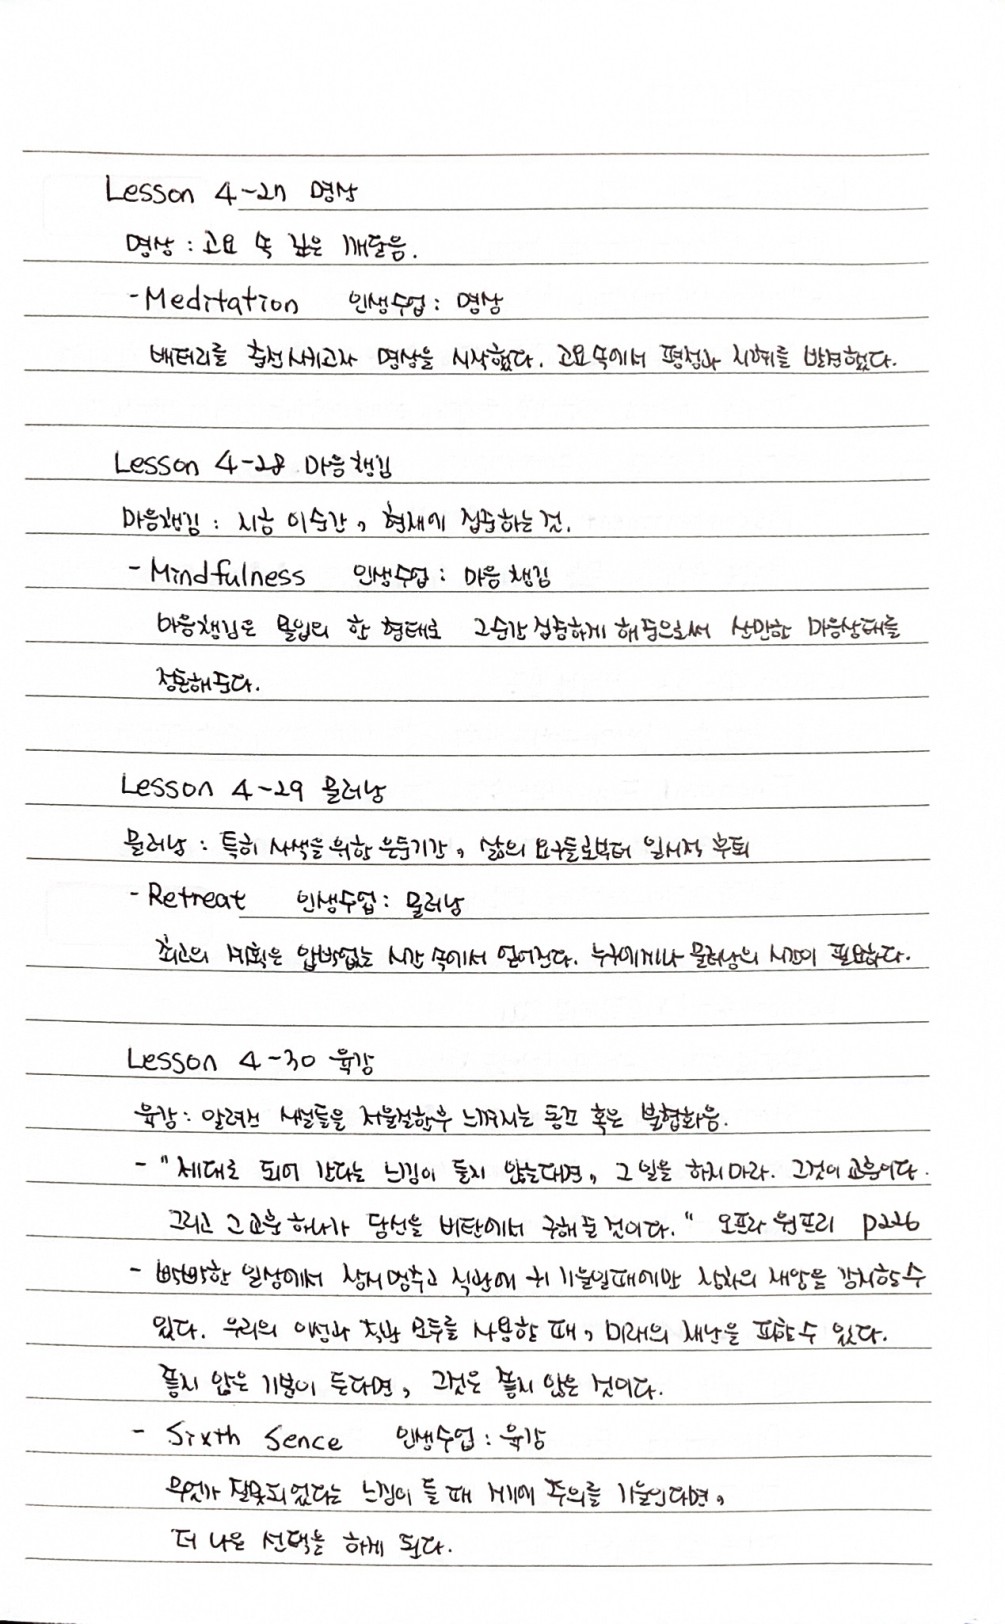 Lesson 4-27 명상
명상 : 고요 속 깊은 깨달음.
- Meditation 인생수업 : 명상
배터리를 충전시키고자 명상을 시작했다. 고요속에서 평정과 지혜를 발견했다.
Lesson 4-28 마음챙김
마음챙김 : 지금 이순간, 현재에 집중하는 것.
- Mindfulness 인생수업 : 마음챙김
마음챙김은 몰입의 한 형태로 그순간 집중하게 해줌으로써 산만한 마음상태를
정돈해준다.
Lesson 4-29 물러남
물러남 : 특히 사색을 위한 은둔기간, 삶의 요구들로부터 일시적 후퇴
- Retreat 인생수업 : 물러남
최고의 계획은 압박없는 시간 속에서 얻어진다. 누구에게나 물러남의 시간이 필요하다.
Lesson 4-30 육감
육감 : 알려진 사실들을 저울질한후 느껴지는 동조 혹은 불협화음.
- "제대로 되어 간다는 느낌이 들지 않는다면, 그 일을 하지마라. 그것이 교훈이다.
그리고 그 교훈 하나가 당신을 비탄에서 구해 줄 것이다." 오프라 윈프리 p226
- 빡빡한 일상에서 잠시 멈추고 직관에 귀 기울일때에만 장차의 재앙을 감지할수
있다. 우리의 이성과 직관 모두를 사용할 때, 미래의 재난을 피할수 있다.
좋지 않은 기분이 든다면, 그것은 좋지 않은 것이다.
- Sixth Sence 인생수업 : 육감
무언가 잘못되었다는 느낌이 들 때 거기에 주의를 기울인다면,
더 나은 선택을 하게 된다.